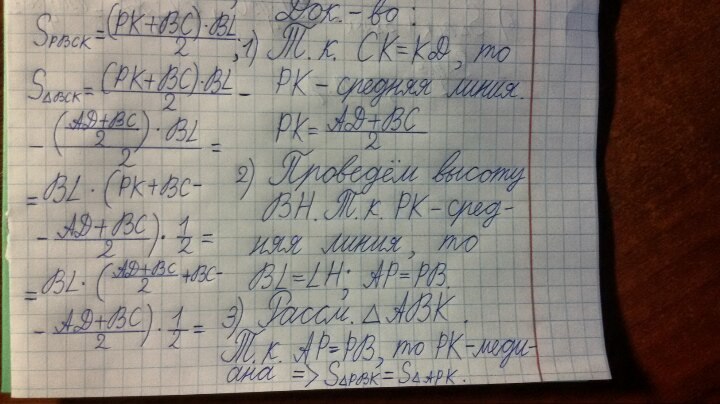 S_PBCK = (PK+BC)·BL / 2 ;
S_ΔBCK = (PK+BC)·BL / 2 −
− ((AD+BC)/2)·BL / 2 =
= BL · (PK+BC−
− (AD+BC)/2) · 1/2 =
= BL · ((AD+BC)/2 +BC−
− (AD+BC)/2) · 1/2 =
Док.-во:
1) Т.к. CK=KD, то
PK – средняя линия.
PK = (AD+BC)/2
2) Проведём высоту
BH. Т.к. PK – сред-
няя линия, то
BL=LH; AP=PB.
3) Рассм. ΔABK.
Т.к. AP=PB, то PK–меди-
ана => S_ΔPBK = S_ΔAPK.